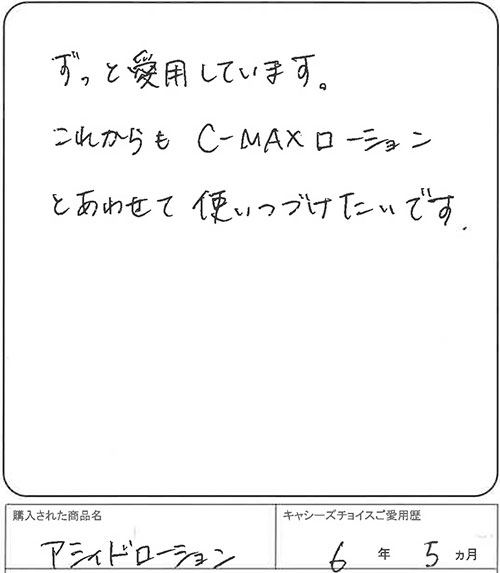 ずっと愛用しています。
これからも C-MAXローション
とあわせて 使いつづけたいです.
購入された商品名
キャシーズチョイスご愛用歴
アシィドローション
6 年 5 ヵ月